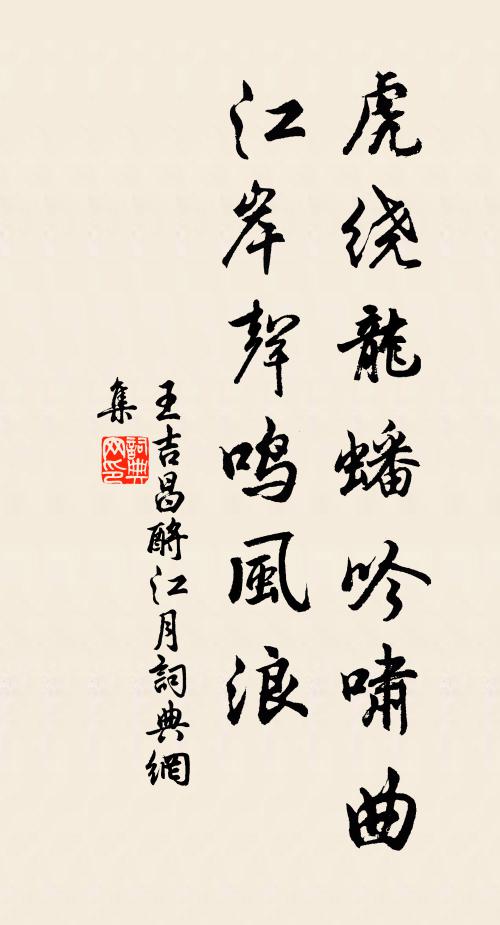 虎绕龍蟠吟啸曲
江岸聲鸣風浪
王吉昌酹江月詞典網
集
詞典
网印